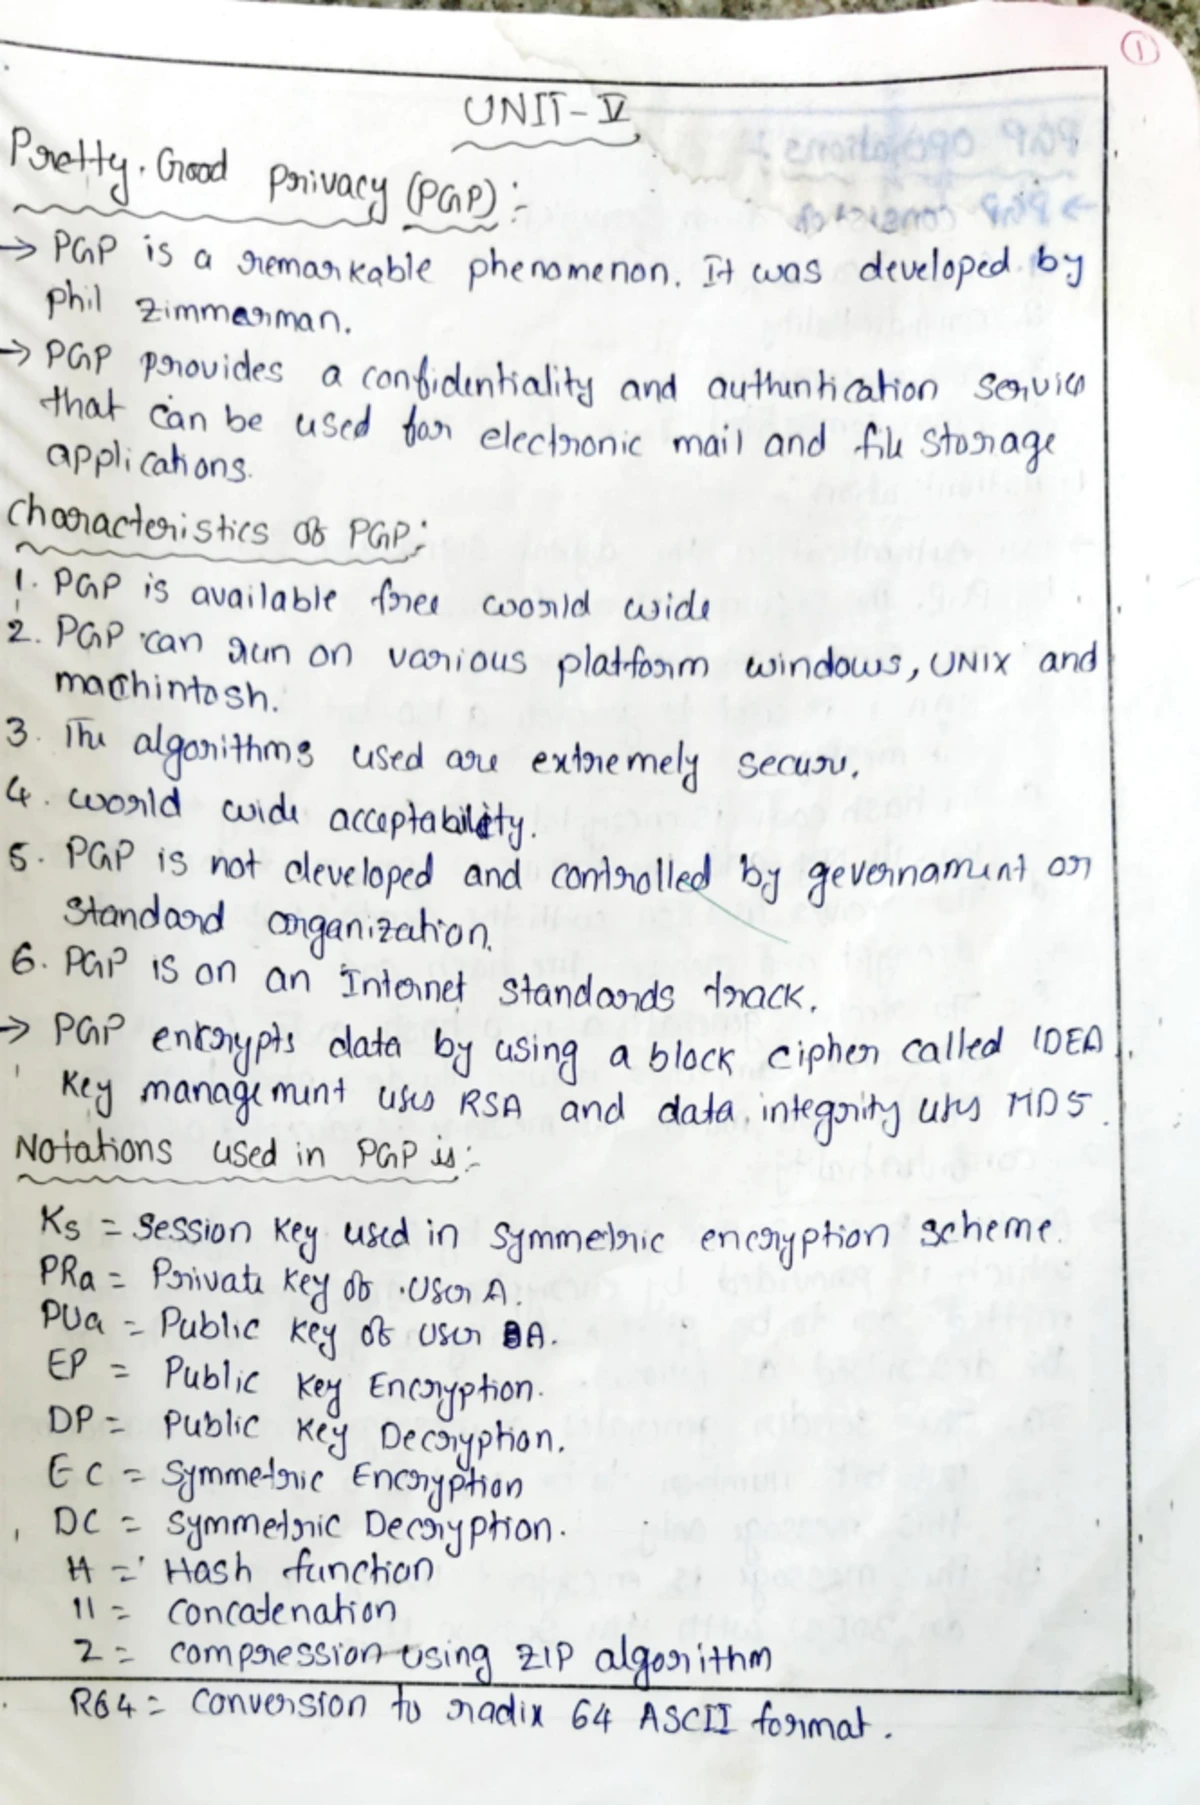 ①
UNIT-V
Pretty Good Privacy (PGP):-
→ PGP is a remarkable phenomenon. It was developed by
phil zimmerman.
→ PGP provides a confidentiality and authuntication service
that can be used for electronic mail and file storage
applications.
Characteristics of PGP:-
1. PGP is available free world wide
2. PGP can run on various platform windows, UNIX and
macchintosh.
3. The algorithms used are extremely secure.
4. world wide acceptability.
5. PGP is not developed and controlled by governament or
standard organization.
6. PGP is on an Internet standards track.
→ PGP encrypts data by using a block cipher called IDEA,
key management uses RSA and data integrity uses MD5.
Notations used in PGP is:-
Ks = session key used in symmetric encryption scheme.
PRa = Private key of User A.
PUa = Public key of user A.
EP = Public key Encryption.
DP = Public key Decryption.
EC = Symmetric Encryption
DC = Symmetric Decryption.
H = Hash function
|| = Concatenation
Z = compression using ZIP algorithm
R64 = Conversion to radix 64 ASCII format.